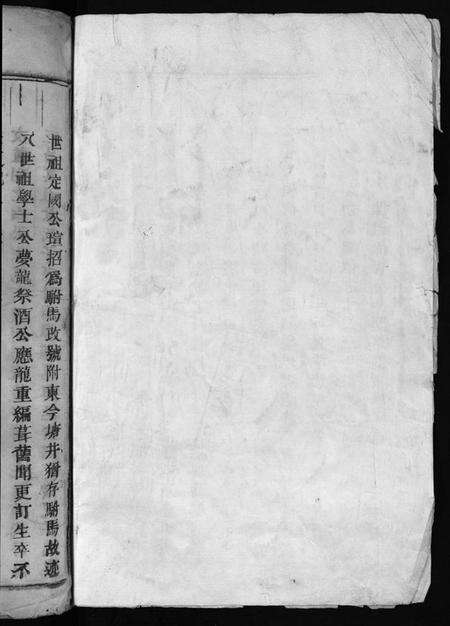 世祖定國公瑄招爲駙馬改號附東今塘井猶存駙馬故迹
八世祖學士公夢龍祭酒公應龍重編葺舊聞更訂生卒不